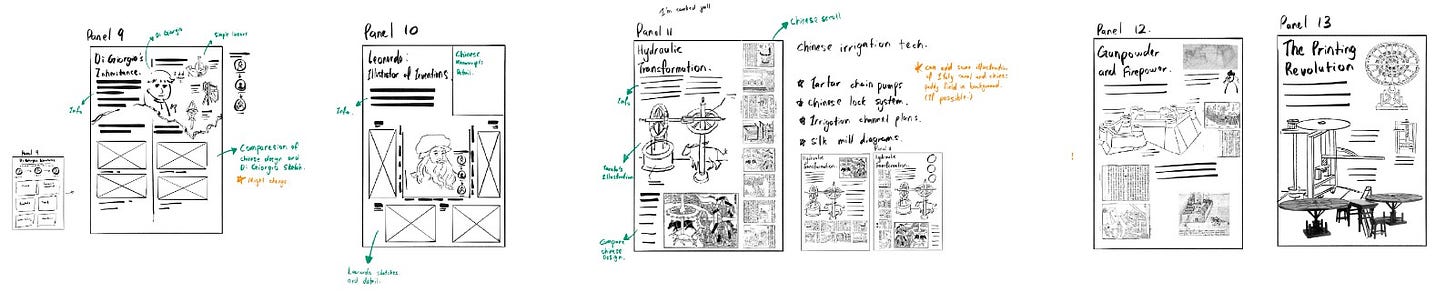 Panel 9
Di Giorgio's
Inheritance.
Di Giorgio
Info.
Comparesion of
chinese design and
Di Giorgio Sketch.
Might change
Panel 9
Panel 10
Leonardo:
Illustrator of Inventions.
Chinese
Detail.
Info.
Leonardo sketches
and detail.
Panel 11
Hydraulic
Transformation.
Chinese scroll
Info.
Taccola's
Illustration
Compare
chinese
Design.
Chinese irrigation tech.
Tartar chain pumps
Chinese lock system.
Irrigation channel plans.
Silk mill diagrams.
can add some illustration
of Italy canal and chinese
paddy field in background.
(If possible.)
Hydraulic
Transformation.
Hydraulic
Transformation.
Panel 12.
Gunpowder
and Firepower.
!
Panel 13
The Printing
Revolution